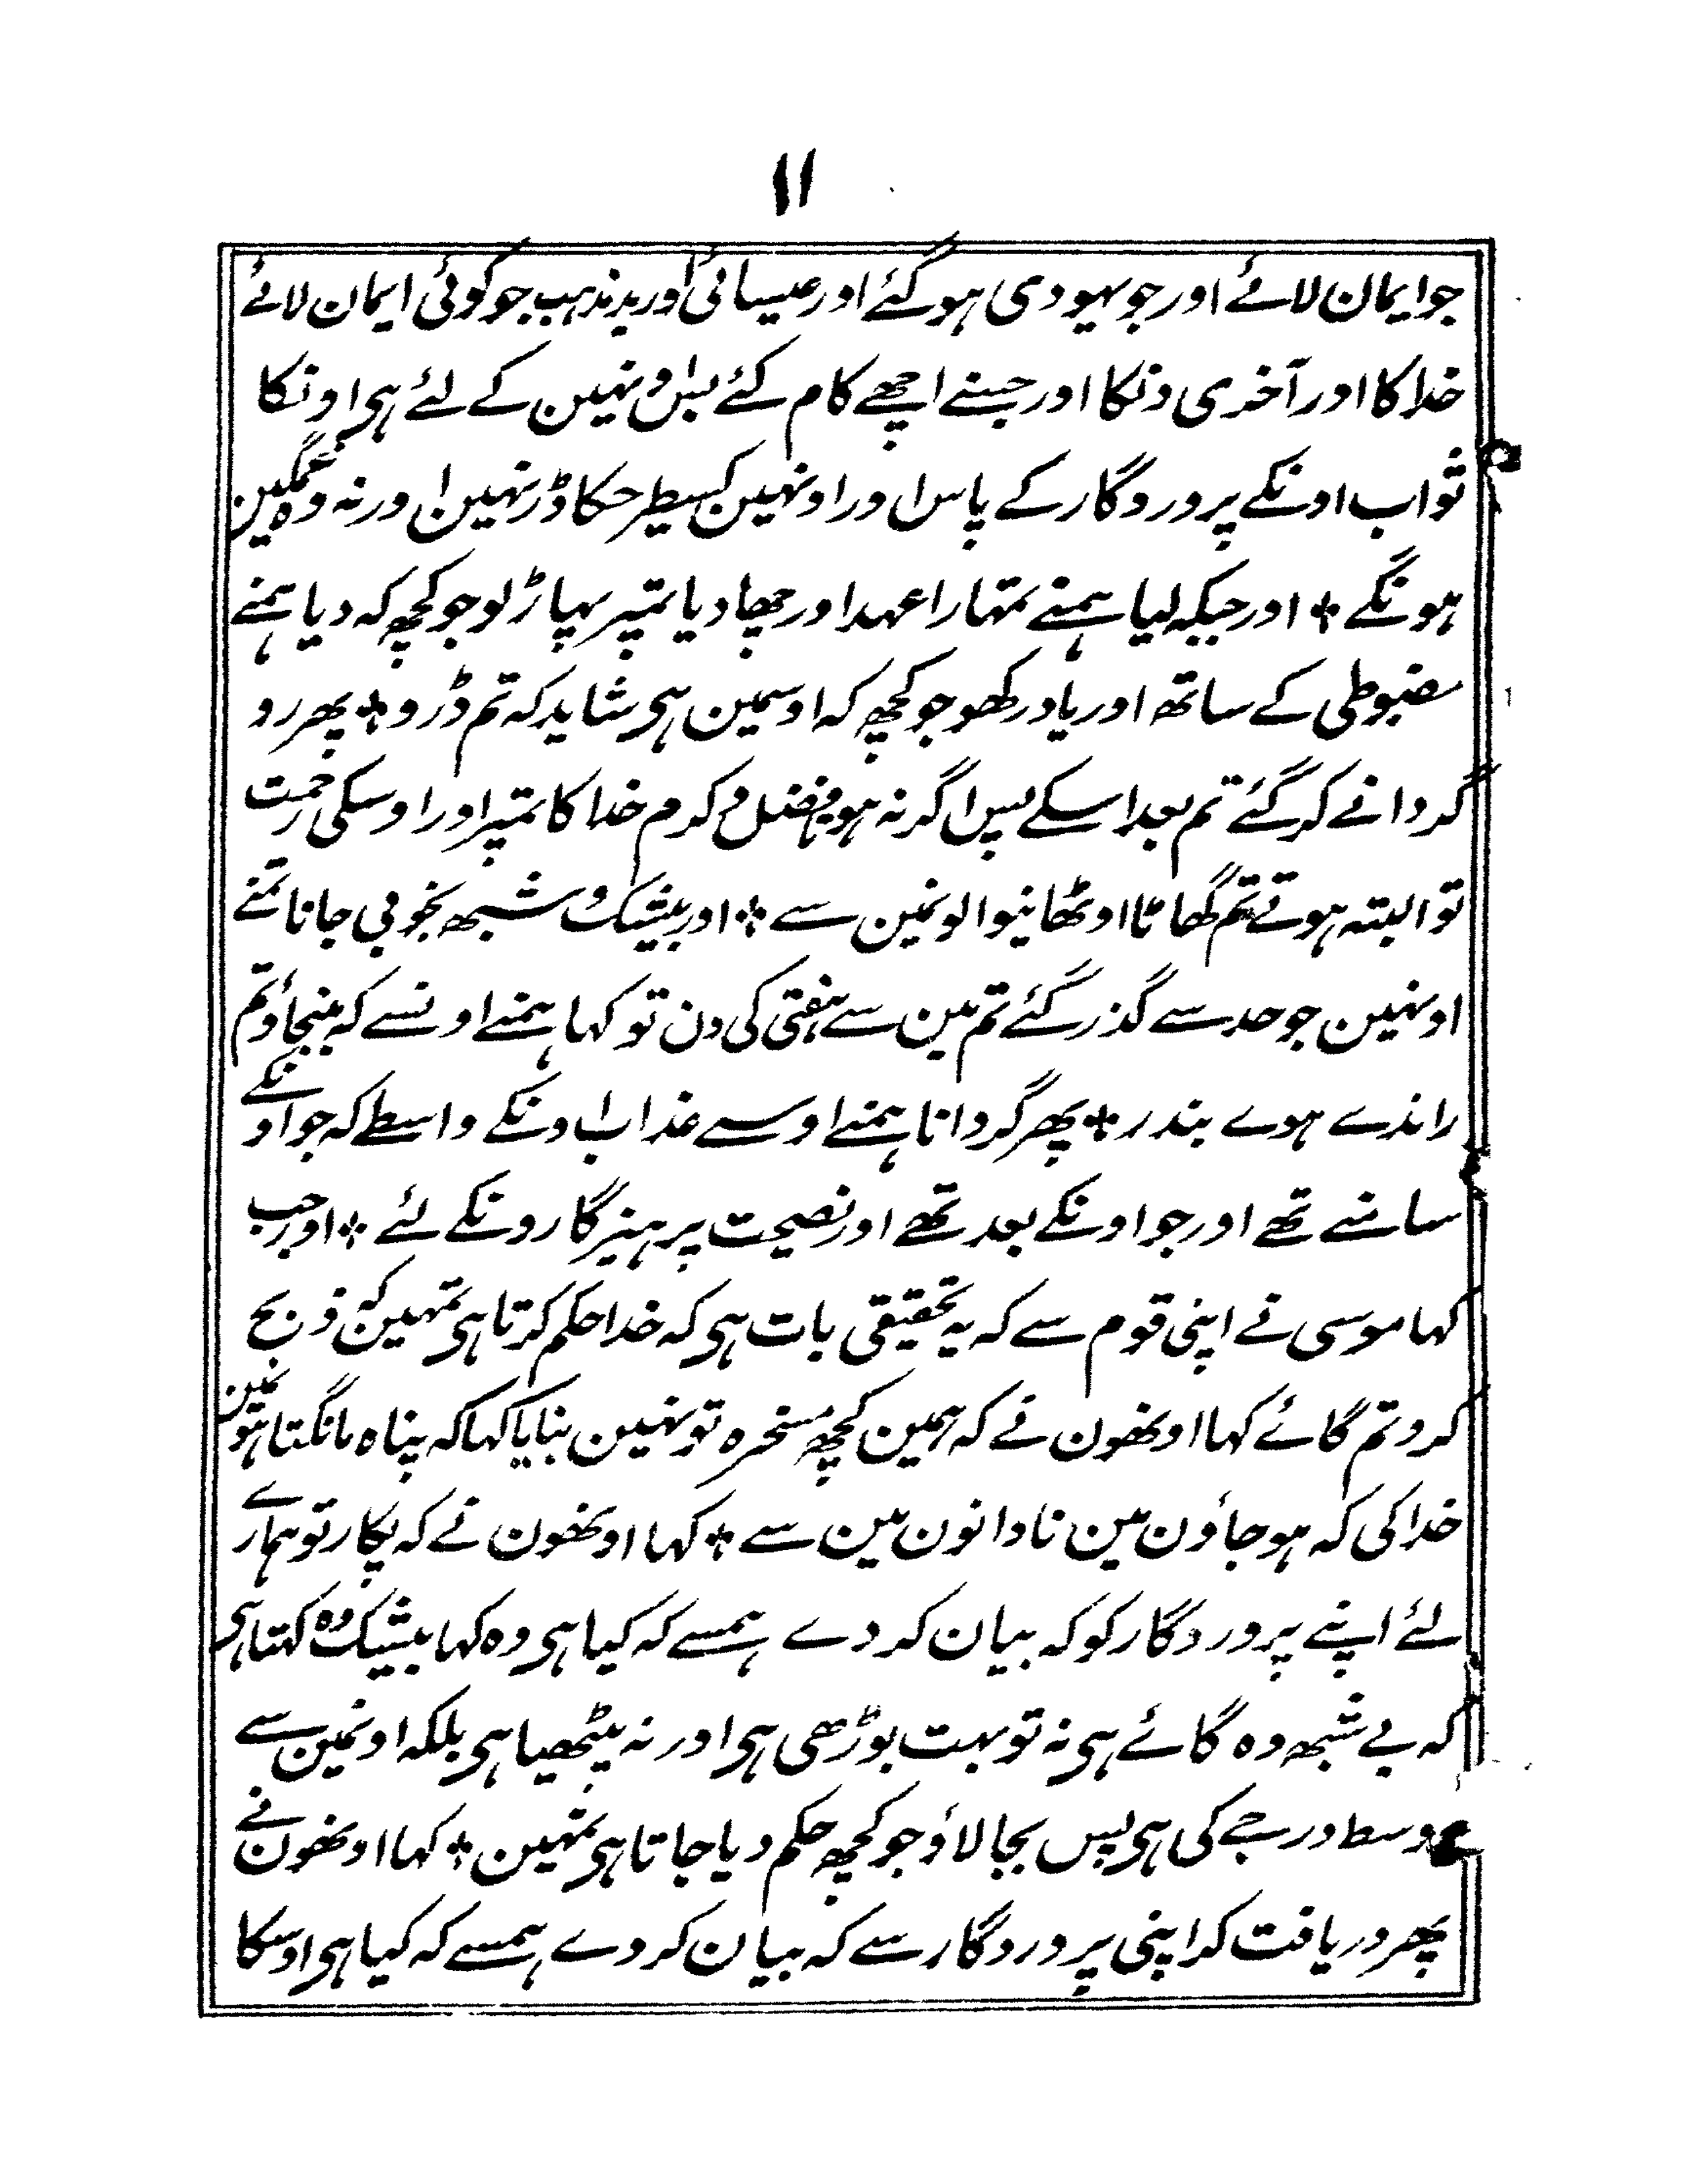 ۱۱
جو ایمان لائے اور جو یہودی ہوگئے اور عیسائی اور بدمذہب جو کوئی ایمان لائے
خدا کا اور آخری دنکا اور جسنے اچھے کام کئے بس اونہین کے لئے ہی اونکا
ثواب اونکے پروردگار کے پاس اور اونہین کسیطرحکا ڈر نہین اور نہ وہ غمگین
ہونگے ٭ اور جبکہ لیا ہمنے تمہارا عہد اور چھا دیا تمپر پہاڑ لو جو کچھ کہ دیا ہمنے
مضبوطی کے ساتھ اور یاد رکھو جو کچھ کہ اوسمین ہی شاید کہ تم ڈرو ٭ پھر رو
گردانے کر گئے تم بعد اسکے پس اگر نہ ہو فضل و کرم خدا کا تمپر اور اوسکی رحمت
تو البتہ ہوتے تم گھاٹا اوٹھانیوالونمین سے ٭ اور بیشک و شبھہ بخوبی جانا تمنے
اونہین جو حد سے گذر گئے تم مین سے ہفتی کی دن تو کہا ہمنے اونسے کہ بنجاؤ تم
راندے ہوے بندر ٭ پھر گردانا ہمنے اوسے عذاب اونکے واسطے کہ جو اونکے
سامنے تھے اور جو اونکے بعد تھے اور نصیحت پرہیزگارونکے لئے ٭ اور جب
کہا موسی نے اپنی قوم سے کہ یہ تحقیقی بات ہی کہ خدا حکم کرتا ہی تمہین کہ ذبح
کرو تم گائے کہا اونھون نے کہ ہمین کچھ مسخرہ تو نہین بنایا کہا کہ پناہ مانگتا ہون مین
خدا کی کہ ہو جاؤن مین نادانون مین سے ٭ کہا اونھون نے کہ پکار تو ہمارے
لئے اپنے پروردگار کو کہ بیان کر دے ہمسے کہ کیا ہی وہ کہا بیشک وہ کہتا ہی
کہ بے شبھہ وہ گائے ہی نہ تو بہت بوڑھی ہی اور نہ پٹھیا ہی بلکہ اونمین سے
وسط درجے کی ہی پس بجا لاؤ جو کچھ حکم دیا جاتا ہی تمہین ٭ کہا اونھون نے
پھر دریافت کر اپنی پروردگار سے کہ بیان کر دے ہمسے کہ کیا ہی اوسکا